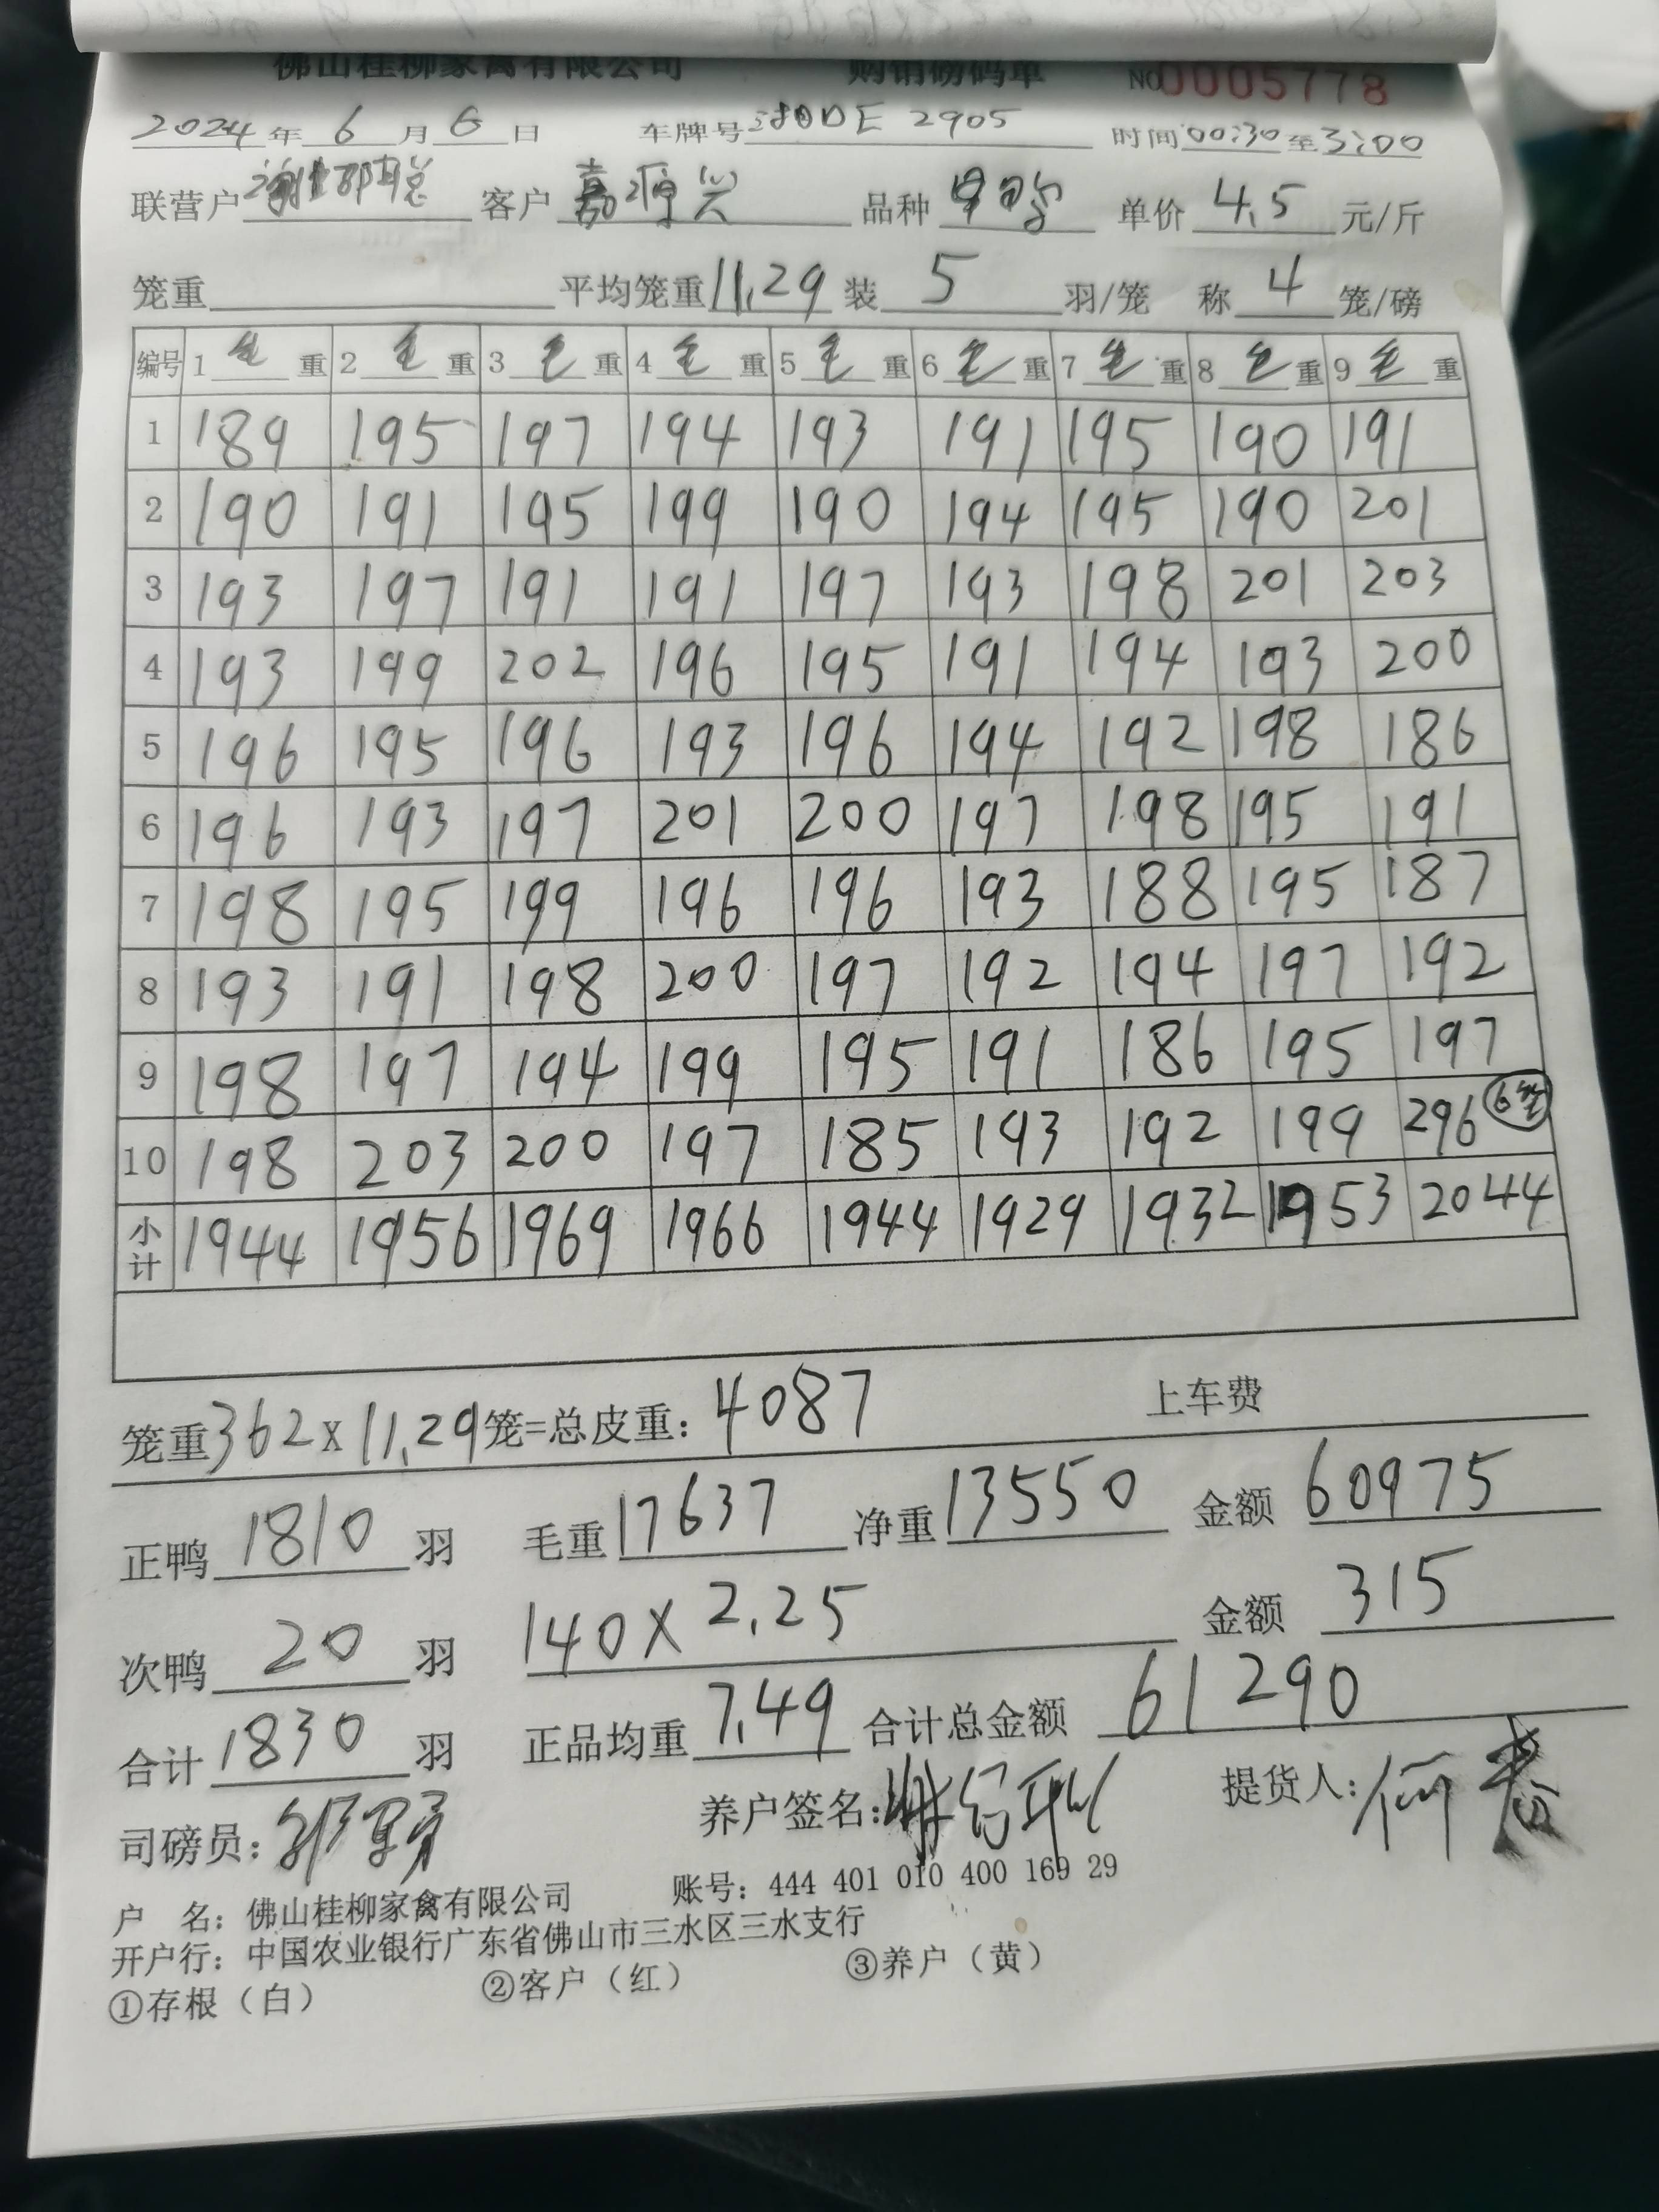 佛山桂柳家禽有限公司 购销磅码单 NO 0005778
2024年 6月 6日 车牌号 DE 2905 时间 00:30 至 3:00
联营户 客户 嘉源兴 品种 单价 4.5 元/斤
笼重 平均笼重 11.29 装 5 羽/笼 称 4 笼/磅
编号 1 毛 重 2 毛 重 3 毛 重 4 毛 重 5 毛 重 6 毛 重 7 毛 重 8 毛 重 9 毛 重
1 189 195 197 194 193 191 195 190 191
2 190 191 195 199 190 194 195 190 201
3 193 197 191 191 197 193 198 201 203
4 193 199 202 196 195 191 194 193 200
5 196 195 196 193 196 194 192 198 186
6 196 193 197 201 200 197 198 195 191
7 198 195 199 196 196 193 188 195 187
8 193 191 198 200 197 192 194 197 192
9 198 197 194 199 195 191 186 195 197
10 198 203 200 197 185 193 192 199 296 6笼
小计 1944 1956 1969 1966 1944 1929 1932 1953 2044
笼重 362 x 11.29 笼=总皮重: 4087 上车费
正鸭 1810 羽 毛重 17637 净重 13550 金额 60975
次鸭 20 羽 140 x 2.25 金额 315
合计 1830 羽 正品均重 7.49 合计总金额 61290
司磅员: 养户签名: 提货人:
户 名: 佛山桂柳家禽有限公司 账号: 444 401 010 400 169 29
开户行: 中国农业银行广东省佛山市三水区三水支行
①存根（白） ②客户（红） ③养户（黄）